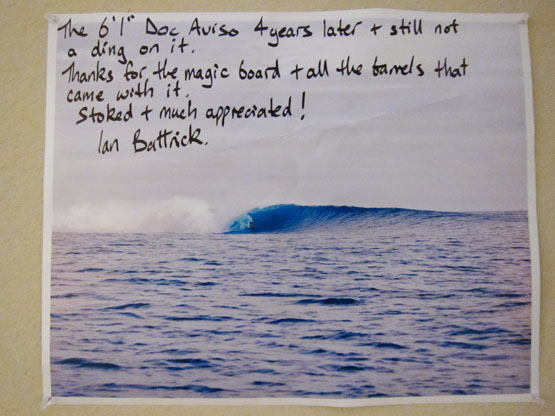 The 6'1" Doc Aviso 4 years later + still not
a ding on it.
Thanks for the magic board + all the barrels that
came with it.
Stoked + much appreciated!
Ian Battrick.